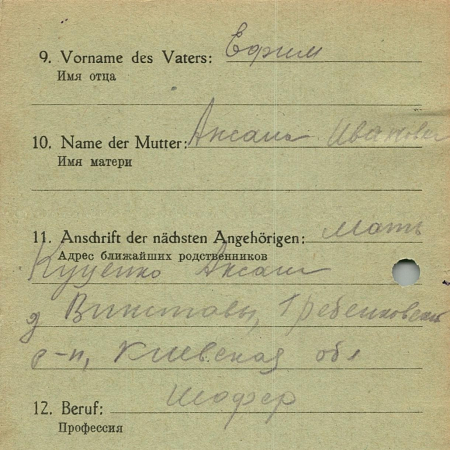 9. Vorname des Vaters: Ефим
Имя отца
10. Name der Mutter: Аксаня Ивановн
Имя матери
11. Anschrift der nächsten Angehörigen: Мать
Адрес ближайших родственников
Куценко Аксаня
д Винставы, Гребенковский
р-н, Киевская обл
12. Beruf: Шофер
Профессия